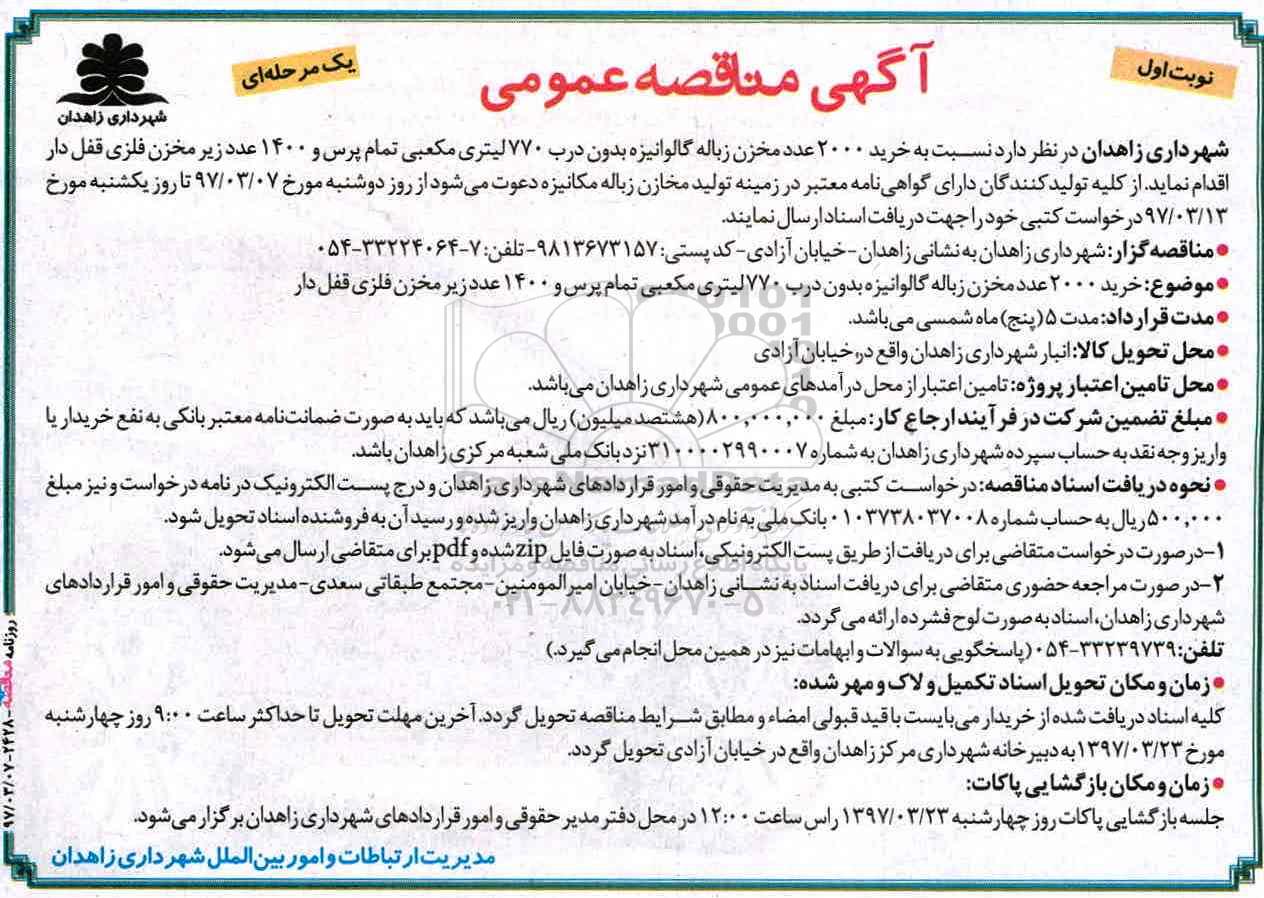 نوبت اول
آگهی مناقصه عمومی
یک مرحله‌ای
شهرداری زاهدان
شهرداری زاهدان در نظر دارد نسبت به خرید ۲۰۰۰ عدد مخزن زباله گالوانیزه بدون درب ۷۷۰ لیتری مکعبی تمام پرس و ۱۴۰۰ عدد زیر مخزن فلزی قفل دار
اقدام نماید. از کلیه تولیدکنندگان دارای گواهی‌نامه معتبر در زمینه تولید مخازن زباله مکانیزه دعوت می‌شود از روز دوشنبه مورخ ۹۷/۰۳/۰۷ تا روز یکشنبه مورخ
۹۷/۰۳/۱۳ درخواست کتبی خود را جهت دریافت اسناد ارسال نمایند.
● مناقصه گزار: شهرداری زاهدان به نشانی زاهدان - خیابان آزادی - کد پستی: ۹۸۱۳۶۷۳۱۵۷ - تلفن: ۷-۳۳۲۲۴۰۶۴-۰۵۴
● موضوع: خرید ۲۰۰۰ عدد مخزن زباله گالوانیزه بدون درب ۷۷۰ لیتری مکعبی تمام پرس و ۱۴۰۰ عدد زیر مخزن فلزی قفل دار
● مدت قرارداد: مدت ۵ (پنج) ماه شمسی می‌باشد.
● محل تحویل کالا: انبار شهرداری زاهدان واقع در خیابان آزادی
● محل تامین اعتبار پروژه: تامین اعتبار از محل درآمدهای عمومی شهرداری زاهدان می‌باشد.
● مبلغ تضمین شرکت در فرآیند ارجاع کار: مبلغ ۸۰۰,۰۰۰,۰۰۰ (هشتصد میلیون) ریال می‌باشد که باید به صورت ضمانت‌نامه معتبر بانکی به نفع خریدار یا
واریز وجه نقد به حساب سپرده شهرداری زاهدان به شماره ۳۱۰۰۰۰۲۹۹۰۰۰۷ نزد بانک ملی شعبه مرکزی زاهدان باشد.
● نحوه دریافت اسناد مناقصه: درخواست کتبی به مدیریت حقوقی و امور قراردادهای شهرداری زاهدان و درج پست الکترونیک در نامه درخواست و نیز مبلغ
۵۰۰,۰۰۰ ریال به حساب شماره ۰۱۰۳۷۳۸۰۳۷۰۰۸ بانک ملی به نام درآمد شهرداری زاهدان واریز شده و رسید آن به فروشنده اسناد تحویل شود.
۱-در صورت درخواست متقاضی برای دریافت از طریق پست الکترونیکی، اسناد به صورت فایل zip شده و pdf برای متقاضی ارسال می‌شود.
۲-در صورت مراجعه حضوری متقاضی برای دریافت اسناد به نشانی زاهدان - خیابان امیرالمومنین - مجتمع طبقاتی سعدی - مدیریت حقوقی و امور قراردادهای
شهرداری زاهدان، اسناد به صورت لوح فشرده ارائه می‌گردد.
تلفن: ۳۳۲۳۹۷۳۹-۰۵۴ (پاسخگویی به سوالات و ابهامات نیز در همین محل انجام می‌گیرد.)
● زمان و مکان تحویل اسناد تکمیل و لاک و مهر شده:
کلیه اسناد دریافت شده از خریدار می‌بایست با قید قبولی امضاء و مطابق شرایط مناقصه تحویل گردد. آخرین مهلت تحویل تا حداکثر ساعت ۹:۰۰ روز چهارشنبه
مورخ ۱۳۹۷/۰۳/۲۳ به دبیرخانه شهرداری مرکز زاهدان واقع در خیابان آزادی تحویل گردد.
● زمان و مکان بازگشایی پاکات:
جلسه بازگشایی پاکات روز چهارشنبه ۱۳۹۷/۰۳/۲۳ راس ساعت ۱۲:۰۰ در محل دفتر مدیر حقوقی و امور قراردادهای شهرداری زاهدان برگزار می‌شود.
مدیریت ارتباطات و امور بین‌الملل شهرداری زاهدان
روزنامه مناقصه - ۲۴۲۸ - ۹۷/۰۳/۰۲
ParsNamadData
پایگاه اطلاع رسانی مناقصه و مزایده
۰۲۱-۸۸۳۴۹۶۷۰-۵